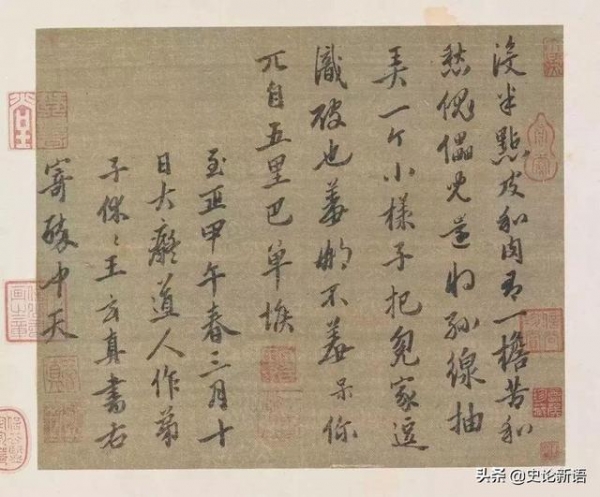 没半點皮和肉有一擔苦和
愁傀儡兒還将絲線抽
弄一个小樣子把冤家逗
識破也羞那不羞呆你
兀自五里巴单堠
至正甲午春三月十
日大癡道人作弟
子休〻王玄真書右
寄醉中天
头条 @史论新语